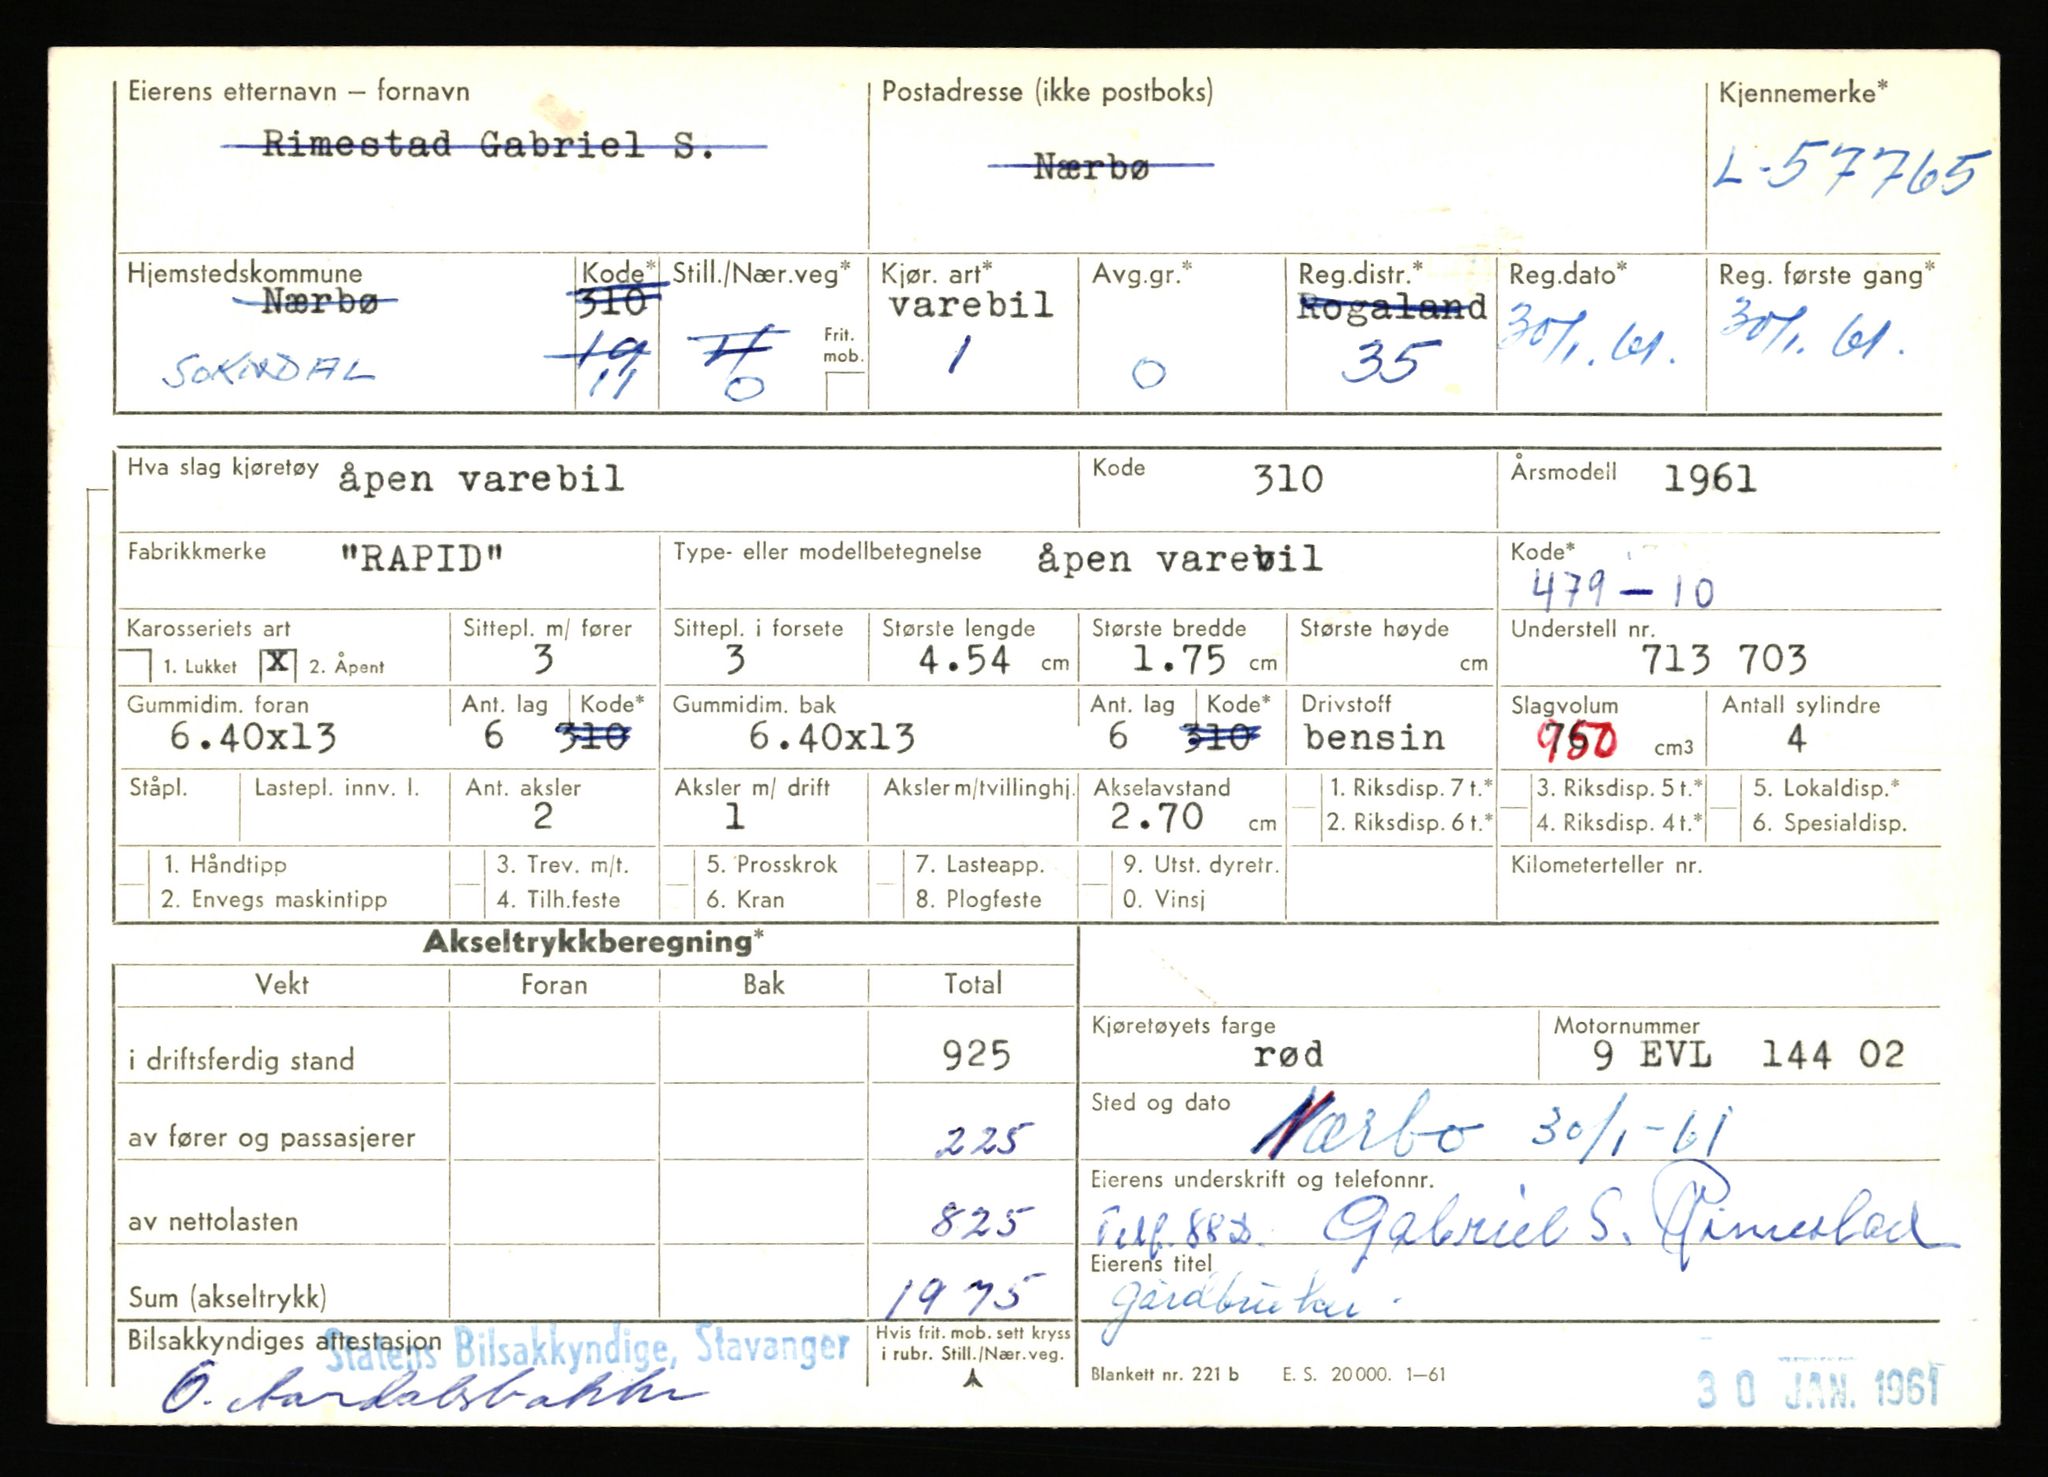 Eierens etternavn – fornavn
Rimestad Gabriel S.
Postadresse (ikke postboks)
Nærbø
Kjennemerke*
L-57765
Hjemstedskommune
Nærbø
SOKNDAL
Kode*
310
19
11
Still./Nær.veg*
0
Frit. mob.
Kjør. art*
varebil
1
Avg.gr.*
0
Reg.distr.*
Rogaland
35
Reg.dato*
30/1. 61.
Reg. første gang*
30/1. 61.
Hva slag kjøretøy åpen varebil
Kode 310
Årsmodell 1961
Fabrikkmerke "RAPID"
Type- eller modellbetegnelse åpen varebil
Kode*
479 – 10
Karosseriets art
1. Lukket X 2. Åpent
Sittepl. m/ fører
3
Sittepl. i forsete
3
Største lengde
4.54 cm
Største bredde
1.75 cm
Største høyde
cm
Understell nr.
713 703
Gummidim. foran
6.40x13
Ant. lag
6
Kode*
310
Gummidim. bak
6.40x13
Ant. lag
6
Kode*
310
Drivstoff
bensin
Slagvolum
950 cm3
Antall sylindre
4
Ståpl.
Lastepl. innv. l.
Ant. aksler
2
Aksler m/ drift
1
Aksler m/tvillinghj.
Akselavstand
2.70 cm
1. Riksdisp. 7 t.*
2. Riksdisp. 6 t.*
3. Riksdisp. 5 t.*
4. Riksdisp. 4 t.*
5. Lokaldisp.*
6. Spesialdisp.
1. Håndtipp
2. Envegs maskintipp
3. Trev. m/t.
4. Tilh.feste
5. Prosskrok
6. Kran
7. Lasteapp.
8. Plogfeste
9. Utst. dyretr.
0. Vinsj
Kilometerteller nr.
Akseltrykkberegning*
Vekt Foran Bak Total
i driftsferdig stand 925
av fører og passasjerer 225
av nettolasten 825
Sum (akseltrykk) 1975
Kjøretøyets farge
rød
Motornummer
9 EVL 144 02
Sted og dato
Nærbø 30/1-61
Eierens underskrift og telefonnr.
Telf. 88D. Gabriel S. Rimestad
Eierens titel
Gårdbruker.
Bilsakkyndiges attestasjon
Statens Bilsakkyndige, Stavanger
Hvis frit. mob. sett kryss
i rubr. Still./Nær.veg.
Blankett nr. 221 b E. S. 20 000. 1–61
30 JAN. 1961